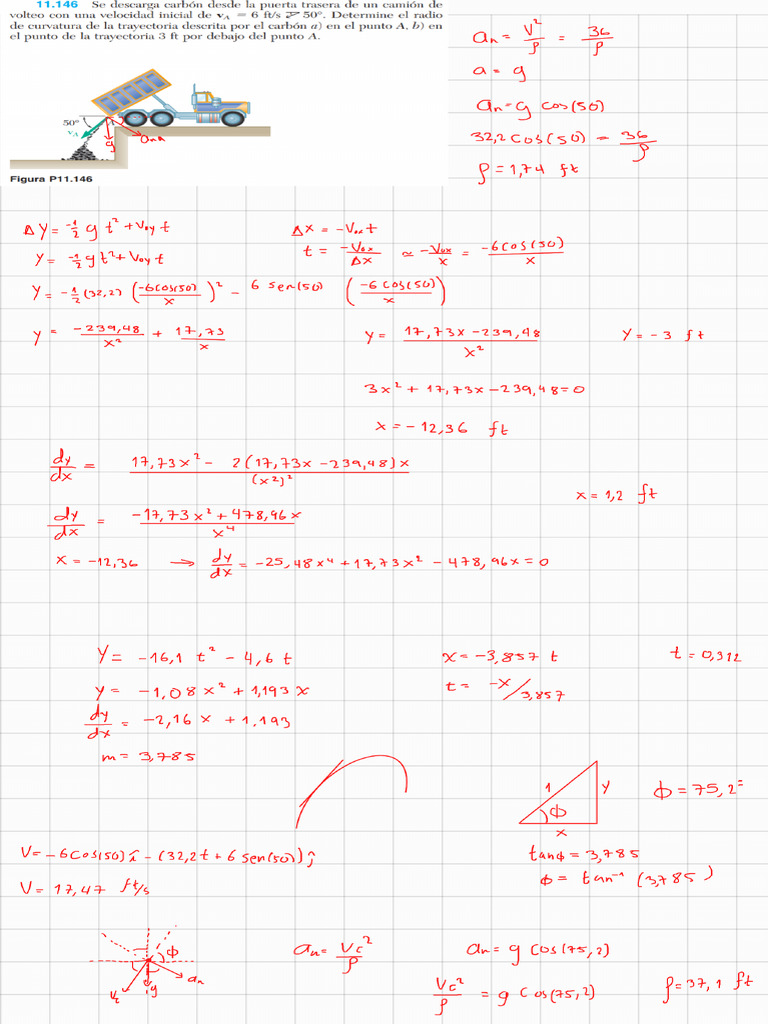 11.146 Se descarga carbón desde la puerta trasera de un camión de
volteo con una velocidad inicial de vA = 6 ft/s ⦫ 50°. Determine el radio
de curvatura de la trayectoria descrita por el carbón a) en el punto A, b) en
el punto de la trayectoria 3 ft por debajo del punto A.
50°
vA
g
anA
Figura P11.146
an = V²/ρ = 36/ρ
a = g
an = g cos(50)
32,2 cos(50) = 36/ρ
ρ = 1,74 ft
Δy = -1/2 g t² + Voy t
y = -1/2 g t² + Voy t
y = -1/2 (32,2) (-6cos(50)/x)² - 6 sen(50) (-6 cos(50)/x)
y = -239,48/x² + 17,73/x
Δx = -Vox t
t = -Vox/Δx ≃ -Vox/x = -6cos(50)/x
y = 17,73x - 239,48/x²
y = -3 ft
3x² + 17,73x - 239,48 = 0
x = -12,36 ft
dy/dx = 17,73x² - 2(17,73x - 239,48)x/(x²)²
x = 1,2 ft
dy/dx = -17,73x² + 478,96x/x⁴
x = -12,36 → dy/dx = -25,48x⁴ + 17,73x² - 478,96x = 0
y = -16,1 t² - 4,6 t
x = -3,857 t
t = 0,312
y = -1,08 x² + 1,193 x
t = -x/3,857
dy/dx = -2,16 x + 1,193
m = 3,785
1
y
ϕ
x
ϕ = 75,2°
tanϕ = 3,785
ϕ = tan⁻¹ (3,785)
V = -6cos(50) î - (32,2t + 6 sen(50)) ĵ
V = 17,47 ft/s
ϕ
an
g
Vc
an = Vc²/ρ
an = g cos(75,2)
Vc²/ρ = g cos(75,2)
ρ = 37,1 ft